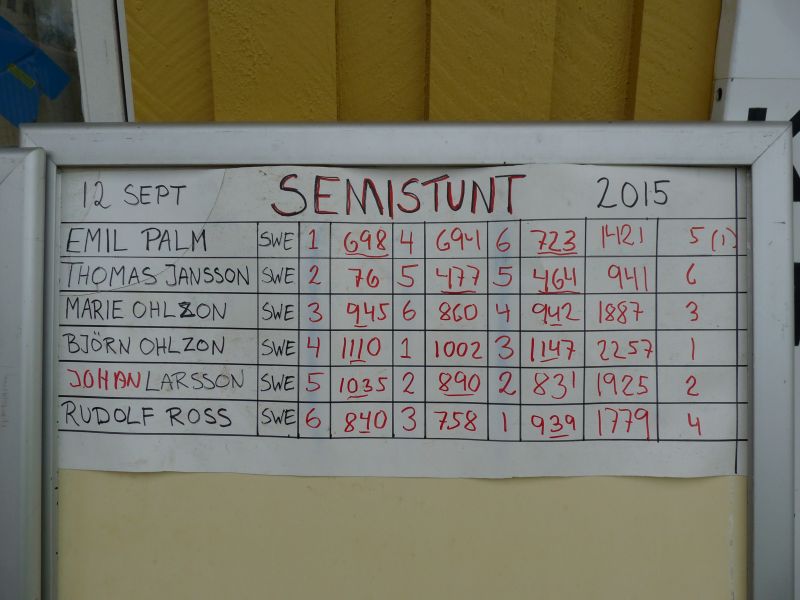 12 SEPT SEMISTUNT 2015
EMIL PALM SWE 1 698 4 694 6 723 1421 5 (1)
THOMAS JANSSON SWE 2 76 5 477 5 464 941 6
MARIE OHLZON SWE 3 945 6 860 4 942 1887 3
BJÖRN OHLZON SWE 4 1110 1 1002 3 1147 2257 1
JOHAN LARSSON SWE 5 1035 2 890 2 831 1925 2
RUDOLF ROSS SWE 6 840 3 758 1 939 1779 4